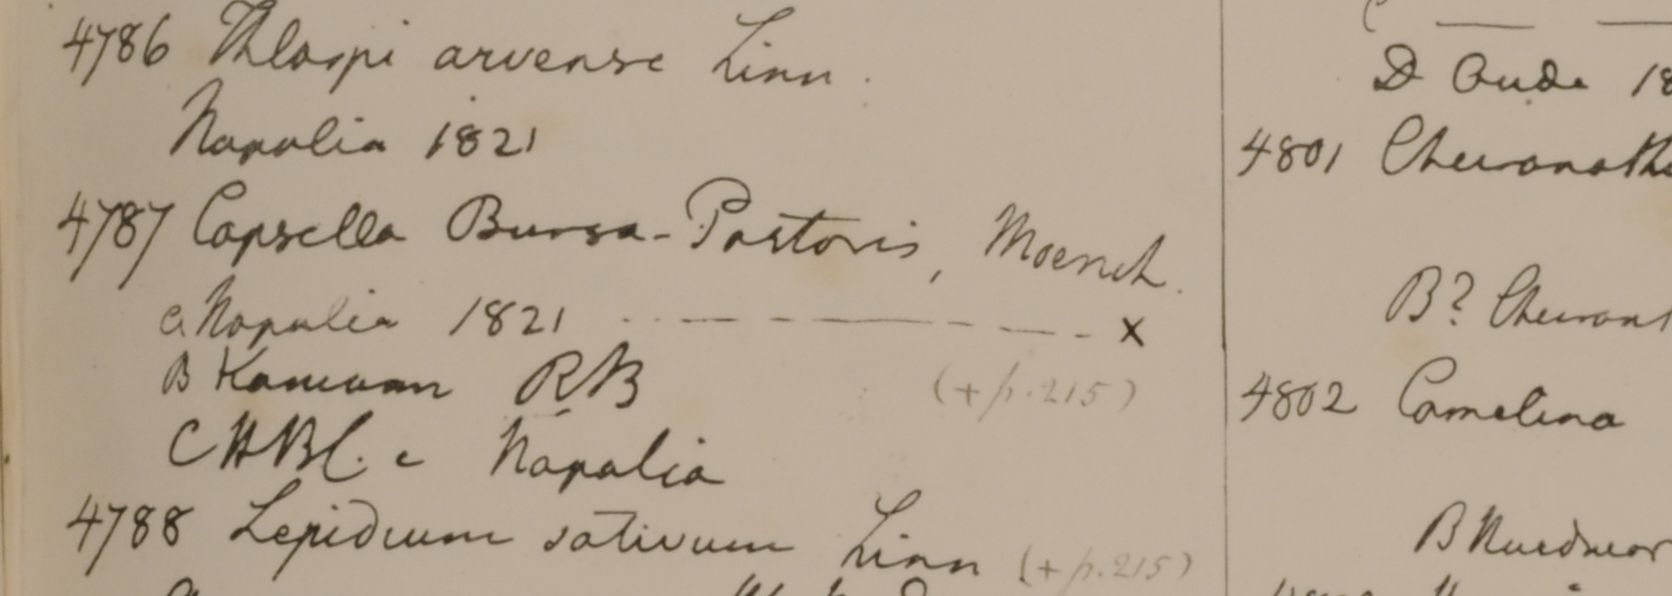 4786 Thlaspi arvense Linn.
Napalia 1821
4787 Capsella Bursa-Pastoris, Moench.
a Napalia 1821 - - - - - x
B Kamaon RB
(+ p. 215)
C HBC. e Napalia
4788 Lepidium sativum Linn (+ p. 215)
D Oude 18
4801 Cheiranth
B? Cheirant
4802 Camelina